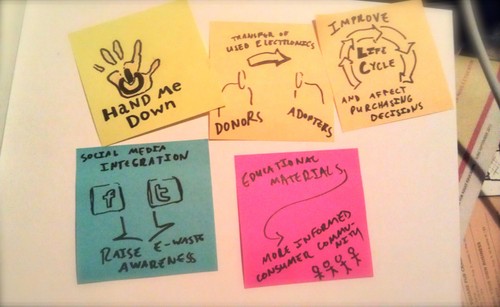 HAND ME
DOWN
TRANSFER OF
USED ELECTRONICS
DONORS
ADOPTERS
IMPROVE
LIFE
CYCLE
AND AFFECT
PURCHASING
DECISIONS
SOCIAL MEDIA
INTEGRATION
f t
RAISE E-WASTE
AWARENESS
EDUCATIONAL
MATERIALS
MORE INFORMED
CONSUMER COMMU-
NITY